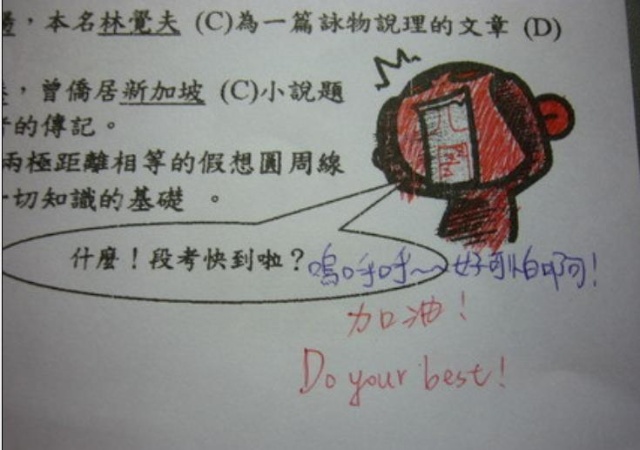 ，本名林覺夫 (C)為一篇詠物說理的文章 (D)
，曾僑居新加坡 (C)小說題
的傳記。
兩極距離相等的假想圓周線
一切知識的基礎 。
什麼！段考快到啦？嗚呼呼~~好可怕啊！
加油！
Do your best!